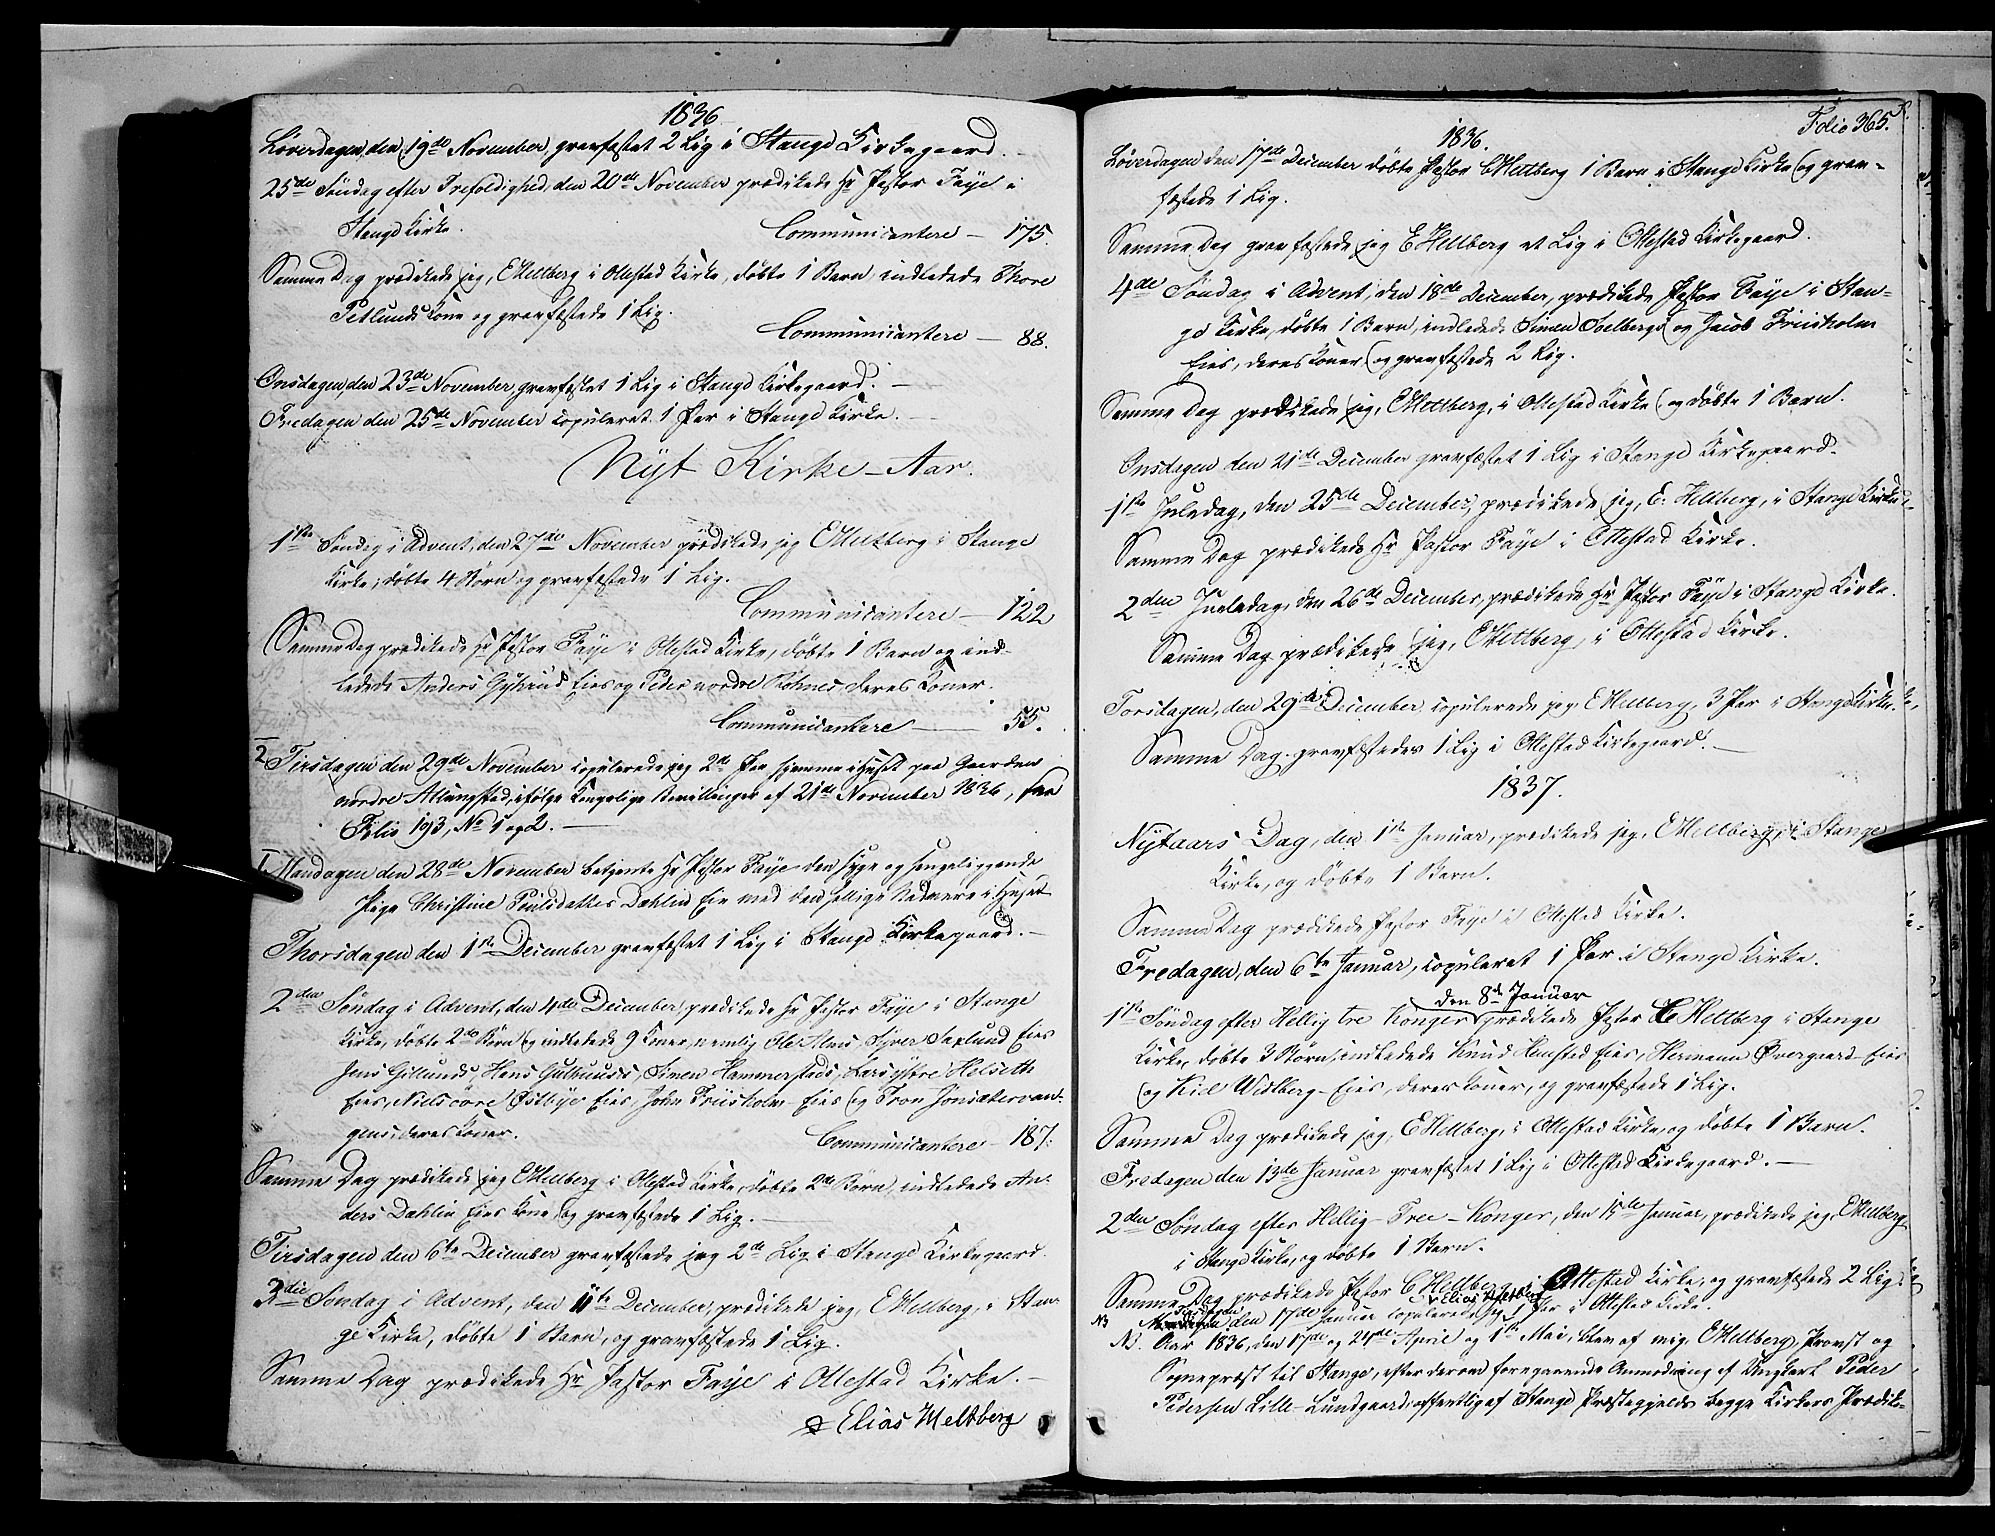 1836
Løverdagen, den 19de November, gravfæstet 2 Lig i Stange Kirkegaard. –
25de Søndag efter Trefoldighed den 20de November prædikede Hr Pastor Faye i
Stange Kirke.
Communicantere – 175.
Samme Dag prædikede jeg, E Heltberg i Ottestad Kirke, døbte 1 Barn indledede Thore
Petlunds Kone og gravfæstede 1 Lig.
Communicantere – 88.
Onsdagen, den 23de November, gravfæstet 1 Lig i Stange Kirkegaard. –
Fredagen den 25de November copuleret 1 Par i Stange Kirke. –
Nyt Kirke-Aar.
1ste Søndag i Advent, den 27de November prædikede jeg E Heltberg i Stange
Kirke, døbte 4 Børn og gravfæstede 1 Lig.
Communicantere – 122
Samme Dag prædikede Hr Pastor Faye i Ottestad Kirke, døbte 1 Barn og ind-
ledede Anders Gyhrud Eies og Peder nordre Rohnes, deres Koner.
Communicantere – 55.
2 Tirsdagen den 29de November copulerede jeg 2de Par hjemme i Huset paa Gaarden
nordre Allungstad, ifølge Kongelige Bevillinger af 21de November 1836, see
Folio 193, No 1 og 2. –
1. Mandagen den 28de November betjente Hr Pastor Faye den syge og sengeliggende
Pige Christine Poulsdatter Dæhlin Eie med den hellige Nadvere i Huset
Thorsdagen den 1ste December gravfæstet 1 Lig i Stange Kirkegaard. –
2den Søndag i Advent, den 4de December, prædikede Hr Pastor Faye i Stange
Kirke, døbte 2de Børn og indledede 9 Koner, nemlig Ole Alms, Syver Saxlund Eies
Jens Gillunds, Hans Gulbuuds, Simen Hammerstads, Lars yttre Helseth
Eies, Niels øvre Østbye Eies, John Friisholm Eies og Tron Jønsætervan-
gens, deres Koner.
Communicantere – 187.
Samme Dag prædikede jeg E Heltberg i Ottestad Kirke, døbte 2de Børn, indledede An-
ders Dæhlin Eies Kone, og gravfæstede 1 Lig. –
Tirsdagen den 6te December gravfæstede jeg 2de Lig i Stange Kirkegaard.
3die Søndag i Advent, den 11te December, prædikede jeg, E Heltberg, i Stan-
ge Kirke, døbte 1 Barn, og gravfæstede 1 Lig.
Samme Dag prædikede Hr Pastor Faye i Ottestad Kirke. –
Elias Heltberg
Folio 365.
1836.
Løverdagen den 17de December døbte Pastor C Heltberg 1 Barn i Stange Kirke og grav-
fæstede 1 Lig.
Samme Dag gravfæstede jeg E Heltberg et Lig i Ottestad Kirkegaard.
4de Søndag i Advent, den 18de December, prædikede Pastor Faye i Stan-
ge Kirke, døbte 1 Barn, indledede Simen Soelbergs og Jacob Friisholm
Eies, deres Koner og gravfæstede 2 Lig.
Samme Dag prædikede jeg, E Heltberg, i Ottestad Kirke og døbte 1 Barn.
Onsdagen den 21de December gravfæstet 1 Lig i Stange Kirkegaard.
1ste Juledag, den 25de December, prædikede jeg, E. Heltberg, i Stange Kirke.
Samme Dag prædikede Hr Pastor Faye i Ottestad Kirke.
2den Juledag, den 26de December, prædikede Hr Pastor Faye i Stange Kirke.
Samme Dag prædikede jeg, E Heltberg, i Ottestad Kirke.
Torsdagen, den 29de December copulerede jeg, E Heltberg, 3 Par i Stange Kirke.
Samme Dag gravfæstedes 1 Lig i Ottestad Kirkegaard. –
1837.
Nytaars Dag, den 1ste Januar, prædikede jeg, E Heltberg, i Stange
Kirke, og døbte 1 Barn.
Samme Dag prædikede Pastor Faye i Ottestad Kirke.
Fredagen, den 6te Januar, copuleret 1 Par i Stange Kirke.
den 8de Januar
1ste Søndag efter Hellig tre Konger prædikede Pastor C Heltberg i Stange
Kirke, døbte 3 Børn, indledede Knud Henstad Eies, Hermann Øvergaard Eies
og Kield Widberg-Eies, deres Koner, og gravfæstede 1 Lig.
Samme Dag prædikede jeg, E Heltberg, i Ottestad Kirke, og døbte 1 Barn.
Fredagen den 13de Januar gravfæstet 1 Lig i Ottestad Kirkegaard. –
2den Søndag efter Hellig-Tree-Konger, den 15de Januar, prædikede jeg, E Heltberg
i Stange Kirke, og døbte 1 Barn.
Samme Dag prædikede Pastor C Heltberg i Ottestad Kirke, og gravfæstede 2 Lig.
Elias Heltberg
NB den 17de Januar copulerede jeg 1 Par i Ottestad Kirke.
NB. Aar 1836, den 17de og 24de April og 1ste Mai, blev af mig, E Heltberg, Provst og
Sognepræst til Stange, efter derom foregaaende Anmodning af Ungkarl Peder
Pedersen Lille-Lundgaard, offentlig af Stange Præstegjelds begge Kirkers Prædike-